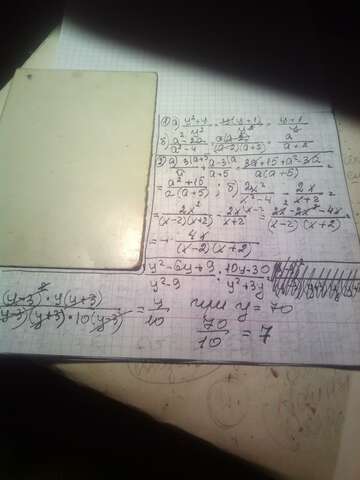 1) а) y²+y / y² = y(y+1) / y² = y+1 / y
б) a²-2a / a²-4 = a(a-2) / (a-2)(a+2) = a / a+2
2) а) 3/a + a-3/a+5 = 3a+15+a²-3a / a(a+5) =
= a²+15 / a(a+5) ; б) 2x² / x²-4 - 2x / x+2 =
= 2x² / (x-2)(x+2) - 2x / x+2 = 2x²-2x²-4x / (x-2)(x+2)
= 4x / (x-2)(x+2)
y²-6y+9 / y²-9 : 10y-30 / y²+3y
(y-3)² · y(y+3) / (y-3)(y+3) · 10(y-3) = y / 10 при y = 70
70 / 10 = 7